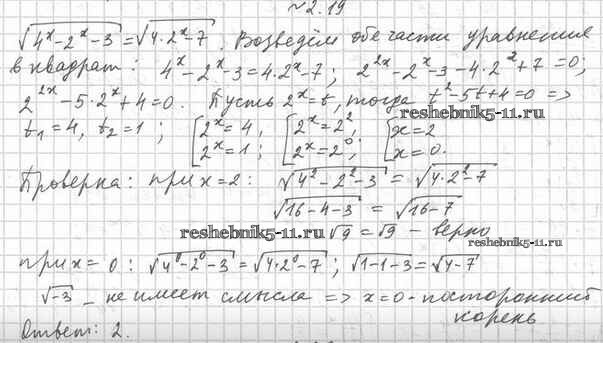 № 2.19
√(4ˣ-2ˣ-3) = √(4·2ˣ-7). Возведём обе части уравнения
в квадрат: 4ˣ-2ˣ-3=4·2ˣ-7; 2²ˣ-2ˣ-3-4·2ˣ+7=0;
2²ˣ-5·2ˣ+4=0. Пусть 2ˣ=t, тогда t²-5t+4=0 =>
reshebnik5-11.ru
t₁=4, t₂=1; [2ˣ=4, 2ˣ=1; [2ˣ=2², 2ˣ=2⁰; [x=2 x=0.
Проверка: при x=2: √(4²-2²-3) = √(4·2²-7)
√(16-4-3) = √(16-7)
reshebnik5-11.ru √9 = √9 – верно
reshebnik5-11.ru
при x=0: √(4⁰-2⁰-3) = √(4·2⁰-7); √(1-1-3) = √(4-7)
√-3 – не имеет смысла => x=0 - посторонний
корень
Ответ: 2.